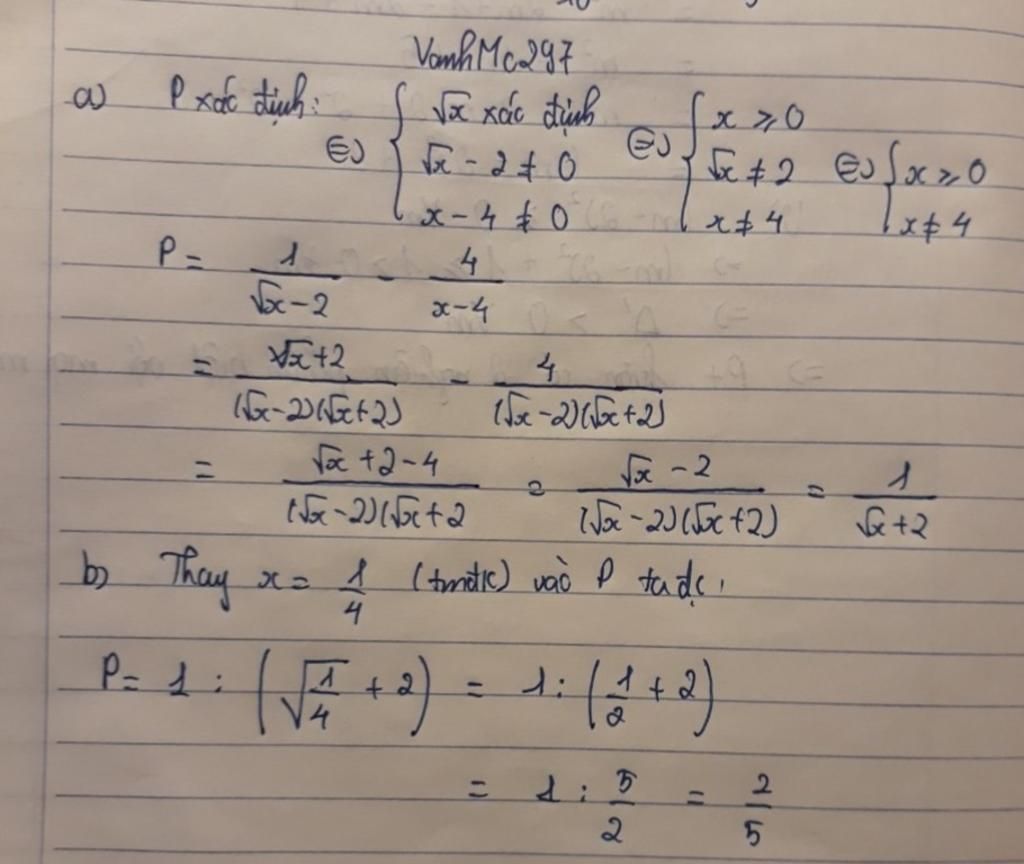 VanhMc297
a) P xác định: ⇔ { √x xác định ⇔ { x ≥ 0
√x - 2 ≠ 0 √x ≠ 2 ⇔ { x ≥ 0
x - 4 ≠ 0 x ≠ 4 x ≠ 4
P = 1/(√x - 2) - 4/(x - 4)
= (√x + 2)/((√x - 2)(√x + 2)) - 4/((√x - 2)(√x + 2))
= (√x + 2 - 4)/((√x - 2)(√x + 2 = (√x - 2)/((√x - 2)(√x + 2)) = 1/(√x + 2)
b) Thay x = 1/4 (tmđk) vào P ta đc:
P = 1 : (√(1/4) + 2) = 1 : (1/2 + 2)
= 1 : 5/2 = 2/5